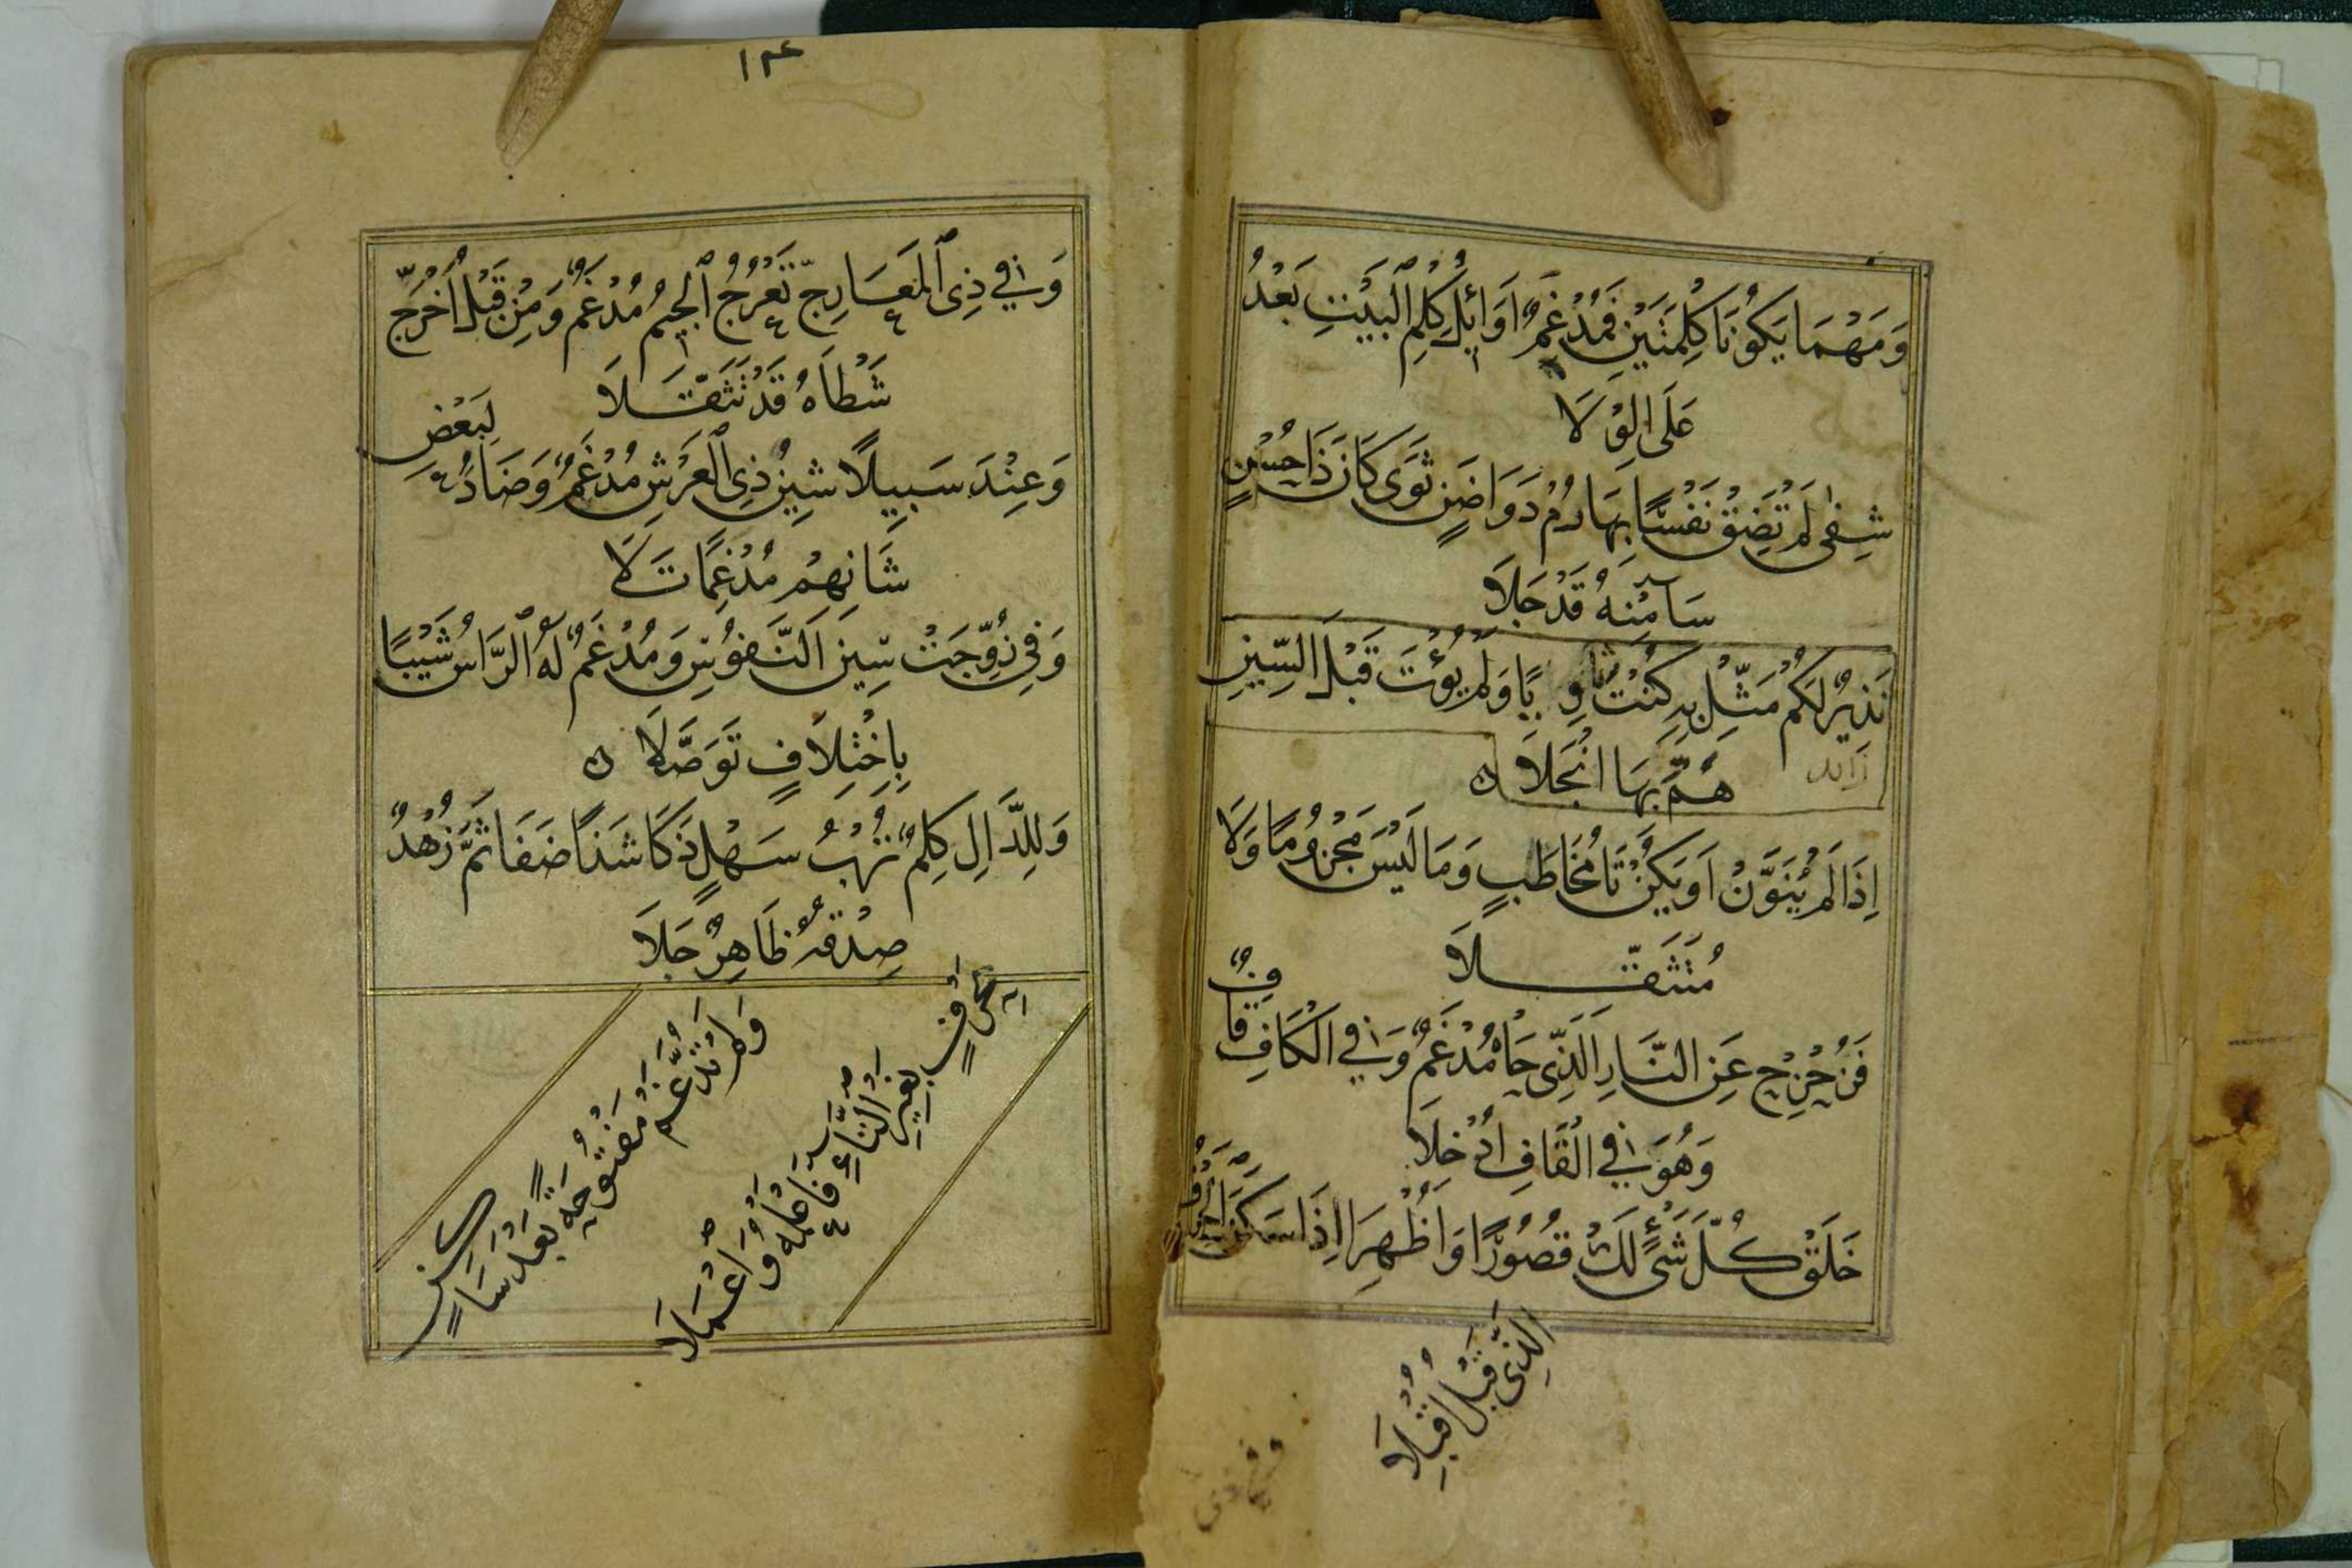 وَمَهْمَا يَكُونَا كِلْمَتَيْنِ فَمُدْغِمٌ اَوَائِلَ كِلْمِ ٱلْبَيْتِ بَعْدُ
عَلَى الوِلَا
شِفٰى لَمْ تَضِقْ نَفْسًا بِهَا رُمْ دَوَا ضَنٍ ثَوَى كَانَ ذَا حُسْنٍ
سَآ مِنْهُ قَدْ جَلَا
نَذِيرٌ لَكُمْ مَثِّلْ بِهِ كُنْتَ ثَاوِيًا وَلَمْ يُؤْتَ قَبْلَ السِّينِ
هَمَّ بِهَا انْجَلَا ه
زائد
اِذَا لَمْ يُنَوَّنْ اَوْ يَكُنْ تَا مُخَاطَبٍ وَمَا لَيْسَ مَجْزُومًا وَلَا
مُتَثَقِّلَا
فَزُحْزِحَ عَنِ النَّارِ الَّذِى حَاهُ مُدْغَمٌ وَفِي الْكَافِ قَافٌ
وَهُوَ فِي الْقَافِ اُدْخِلَا
خَلَقْ كُلَّ شَىْءٍ لَكْ قُصُورًا وَاَظْهِرَا اِذَا سَكَنَ الْحَرْفُ
الَّذِى قَبْلُ اُقْبِلَا
وفي ذي
١٣٤
وَفِي ذِى ٱلْمَعَارِجِ تَعْرُجُ ٱلْجِيمُ مُدْغَمٌ وَمِنْ قَبْلُ اَخْرَجَ
شَطْأَهُ قَدْ تَثَقَّلَا
وَعِنْدَ سَبِيلًا شِينُ ذِى ٱلْعَرْشِ مُدْغَمٌ وَضَادُ لِبَعْضِ
شَانِهِمْ مُدْغَمًا تَلَا
وَفِي زُوِّجَتْ سِينُ النُّفُوسِ وَمُدْغَمٌ لَهُ ٱلرَّاسُ شَيْبًا
بِاخْتِلَافٍ تَوَصَّلَا ه
وَلِلدَّالِ كِلْمٌ تُرْبُ سَهْلٍ ذَكَا شَذًا ضَفَا ثَمَّ زُهْدٌ
صِدْقُهُ ظَاهِرٌ جَلَا
وَلَمْ تُدَّغَمْ مَفْتُوحَةً بَعْدَ سَاكِنٍ
بِحَرْفٍ بِغَيْرِ التَّاءِ فَاعْلَمْهُ وَاعْمَلَا